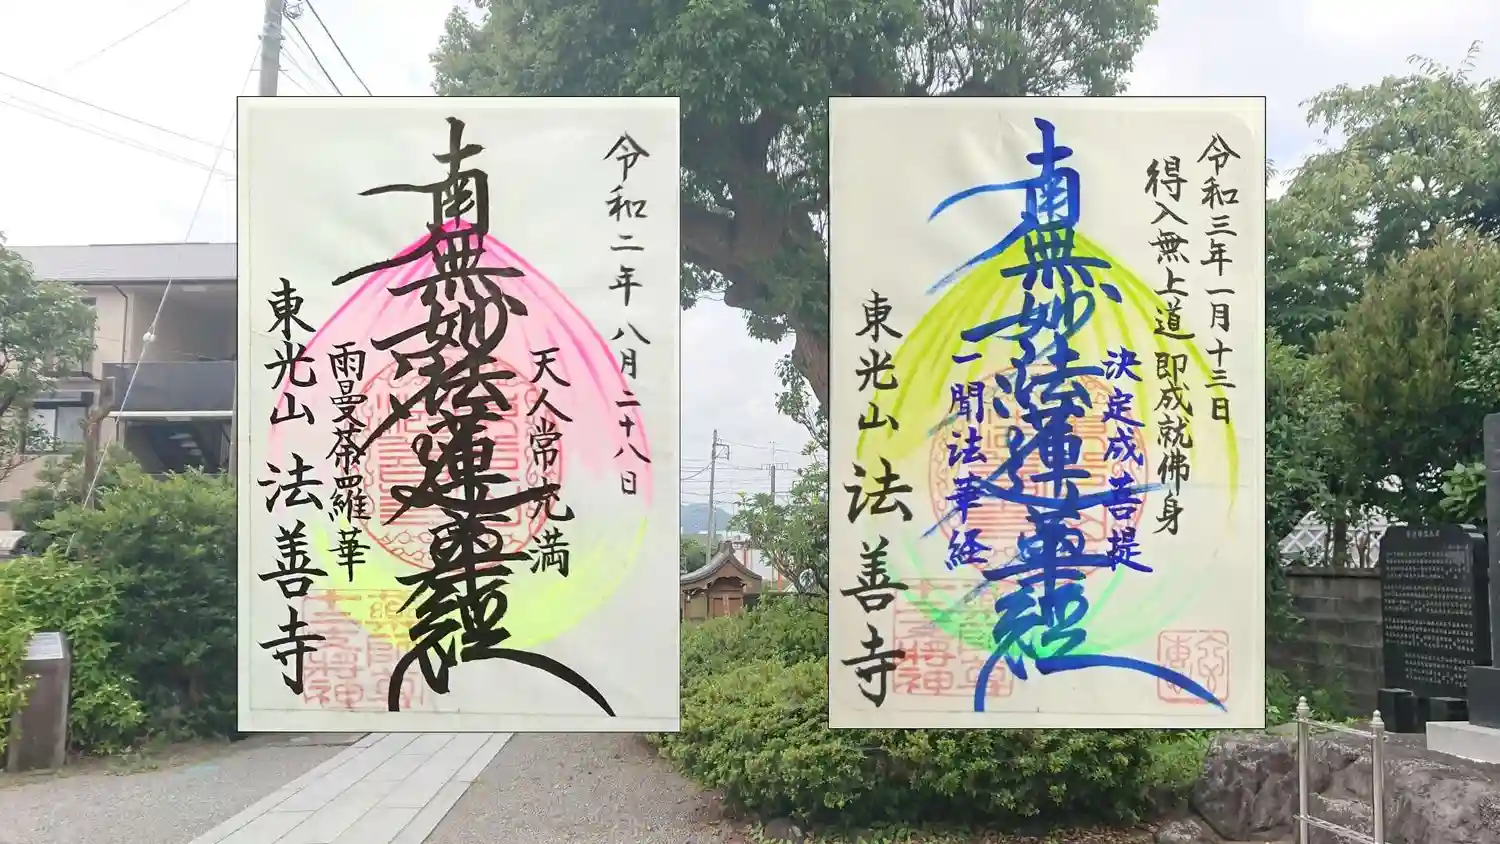 令和二年八月二十八日
天人常充満
南無妙法蓮華経
雨曼荼羅華
東光山 法善寺
令和三年一月十三日
得入無上道 即成就佛身
決定成菩提
南無妙法蓮華経
一聞法華経
東光山 法善寺